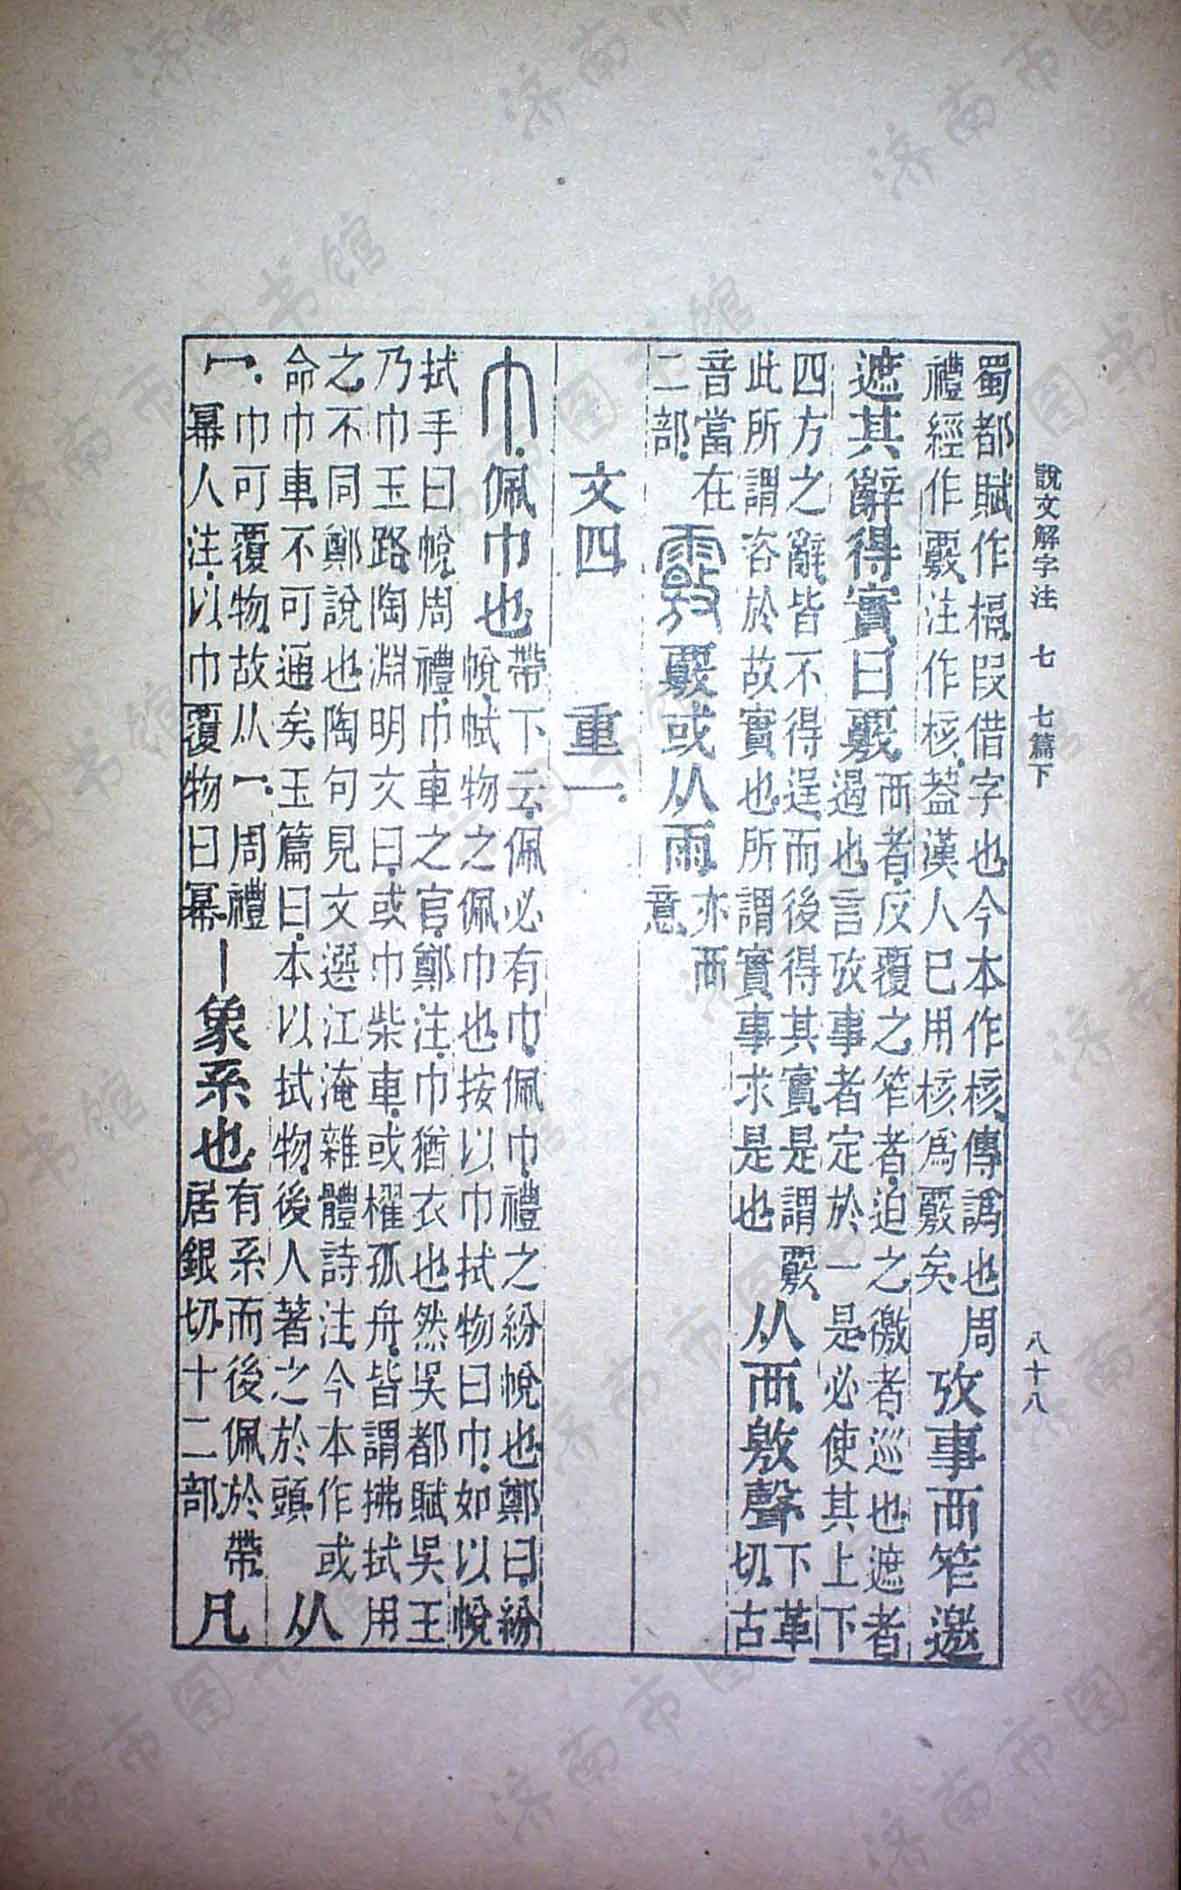 說文解字注 七 七篇下 八十八
蜀都賦作槅叚借字也今本作核傳譌也周
禮經作覈注作核葢漢人巳用核爲覈矣
攷事襾笮邀
遮其辭得實曰覈
襾者反覆之笮者迫之徼者巡也遮者
遏也言攷事者定於一是必使其上下
四方之辭皆不得逞而後得其實是謂覈
此所謂咨於故實也所謂實事求是也
从襾敫聲
下革
切古
音當在
二部
覈或从雨
亦襾
意
文四 重一
巾佩巾也
帶下云佩必有巾佩巾禮之紛帨也鄭曰紛
帨拭物之佩巾也按以巾拭物曰巾如以帨
拭手曰帨周禮巾車之官鄭注巾猶衣也然吳都賦吳王
乃巾玉路陶淵明文曰或巾柴車或櫂孤舟皆謂拂拭用
之不同鄭說也陶句見文選江淹雜體詩注今本作或
命巾車不可通矣玉篇曰本以拭物後人著之於頭
从
冖
巾可覆物故从冖周禮
冪人注以巾覆物曰冪
丨象系也
有系而後佩於帶
居銀切十二部
凡
济南市图书馆